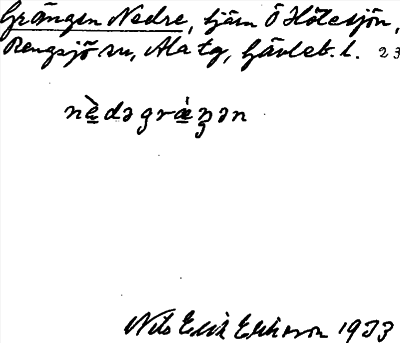 Grängen Nedre, tjärn Ö Hölesjön,
Rengsjö sn, Ala tg, Gävleb. l. 23
nè̱dəgrä̀ŋən
Nils Erik Eriksson 1933